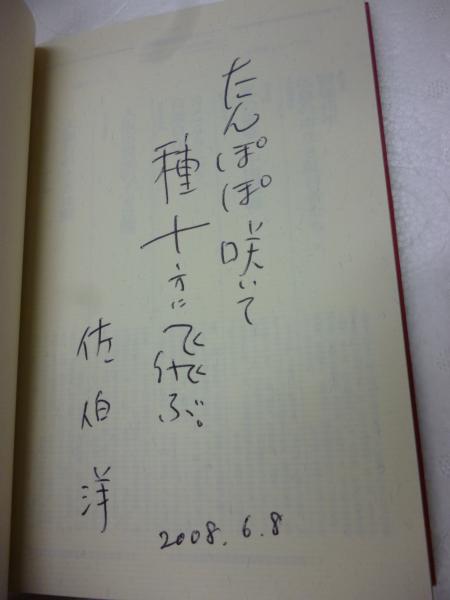 たんぽぽ咲いて
種十方に飛ぶ。
佐伯洋
2008.6.8